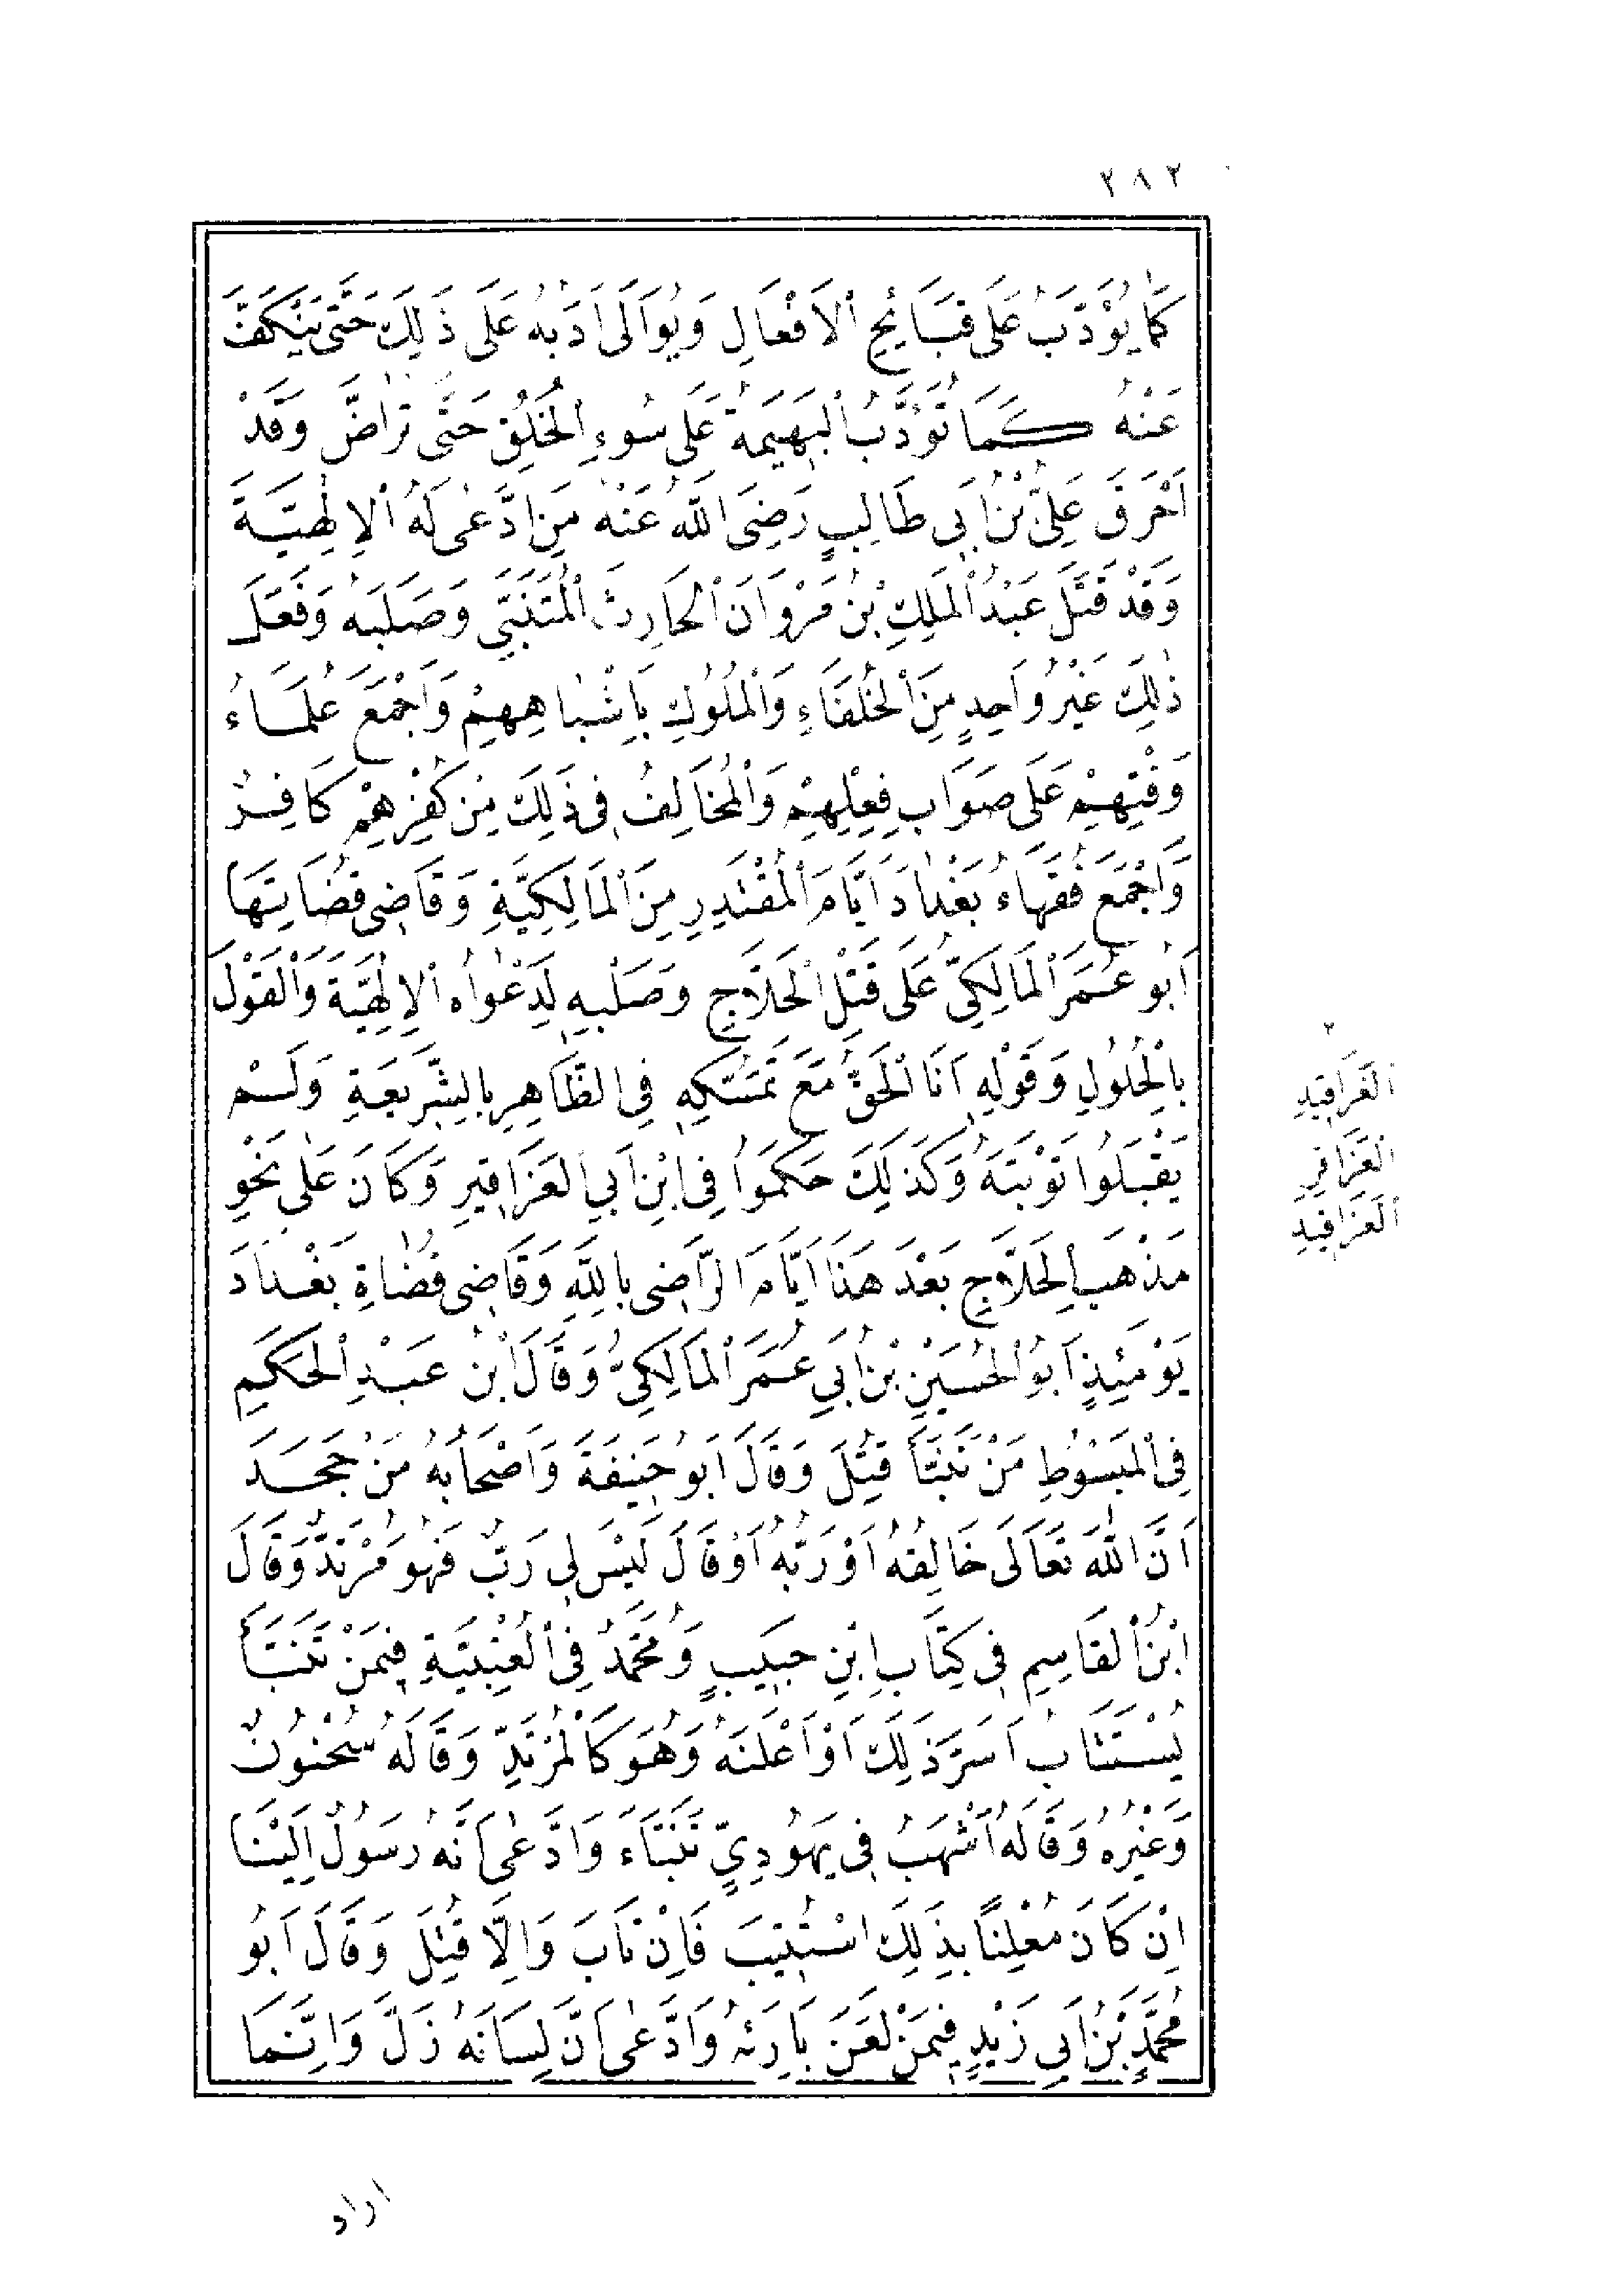 ٢٨٢
كَمَا يُؤَدَّبُ عَلَى قَبَائِحِ الْاَفْعَالِ وَيُوَالَى اَدَبُهُ عَلَى ذَلِكَ حَتَّى يَنْكَفَّ
عَنْهُ كَمَا تُؤَدَّبُ الْبَهِيمَةُ عَلَى سُوءِ الْخُلُقِ حَتَّى تُرَاضَ وَقَدْ
اَحْرَقَ عَلِيُّ بْنُ اَبِي طَالِبٍ رَضِيَ اللّٰهُ عَنْهُ مَنِ ادَّعٰى لَهُ الْاِلٰهِيَّةَ
وَقَدْ قَتَلَ عَبْدُ الْمَلِكِ بْنُ مَرْوَانَ الْحَارِثَ الْمُتَنَبِّي وَصَلَبَهُ وَفَعَلَ
ذٰلِكَ غَيْرُ وَاحِدٍ مِنَ الْخُلَفَاءِ وَالْمُلُوكِ بِاَشْبَاهِهِمْ وَاَجْمَعَ عُلَمَاءُ
وَقْتِهِمْ عَلَى صَوَابِ فِعْلِهِمْ وَالْمُخَالِفُ فِي ذَلِكَ مِنْ كُفْرِهِمْ كَافِرٌ
وَاَجْمَعَ فُقَهَاءُ بَغْدَادَ اَيَّامَ الْمُقْتَدِرِ مِنَ الْمَالِكِيَّةِ وَقَاضِي قُضَاتِهَا
اَبُو عُمَرَ الْمَالِكِيُّ عَلَى قَتْلِ الْحَلَّاجِ وَصَلْبِهِ لِدَعْوَاهُ الْاِلٰهِيَّةَ وَالْقَوْلَ
بِالْحُلُولِ وَقَوْلِهِ اَنَا الْحَقُّ مَعَ تَمَسُّكِهِ فِي الظَّاهِرِ بِالشَّرِيعَةِ وَلَمْ
يَقْبَلُوا تَوْبَتَهُ وَكَذَلِكَ حَكَمُوا فِي ابْنِ اَبِي الْعَزَاقِيرِ وَكَانَ عَلٰى نَحْوِ
مَذْهَبِ الْحَلَّاجِ بَعْدَ هَذَا اَيَّامَ الرَّاضِي بِاللّٰهِ وَقَاضِي قُضَاةِ بَغْدَادَ
يَوْمَئِذٍ اَبُو الْحُسَيْنِ بْنُ اَبِي عُمَرَ الْمَالِكِيُّ وَقَالَ ابْنُ عَبْدِ الْحَكَمِ
فِي الْمَبْسُوطِ مَنْ تَنَبَّأَ قُتِلَ وَقَالَ اَبُو حَنِيفَةَ وَاَصْحَابُهُ مَنْ جَحَدَ
اَنَّ اللّٰهَ تَعَالَى خَالِقُهُ اَوْ رَبُّهُ اَوْ قَالَ لَيْسَ لِي رَبٌّ فَهُوَ مُرْتَدٌّ وَقَالَ
ابْنُ الْقَاسِمِ فِي كِتَابِ ابْنِ حَبِيبٍ وَمُحَمَّدٌ فِي الْعُتْبِيَّةِ فِيمَنْ تَنَبَّأَ
يُسْتَتَابُ اَسَرَّ ذَلِكَ اَوْ اَعْلَنَهُ وَهُوَ كَالْمُرْتَدِّ وَقَالَهُ سُحْنُونٌ
وَغَيْرُهُ وَقَالَهُ اَشْهَبُ فِي يَهُودِيٍّ تَنَبَّاءَ وَادَّعٰى اَنَّهُ رَسُولٌ اِلَيْنَا
اِنْ كَانَ مُعْلِنًا بِذَلِكَ اسْتُتِيبَ فَاِنْ تَابَ وَاِلَّا قُتِلَ وَقَالَ اَبُو
مُحَمَّدِ بْنُ اَبِي زَيْدٍ فِيمَنْ لَعَنَ بَارِئَهُ وَادَّعٰى اَنَّ لِسَانَهُ زَلَّ وَاِنَّمَا
٢
الْغَرَاقِيدِ
الْعَزَاقِرِ
الْعَزَاقِيدِ
اراد